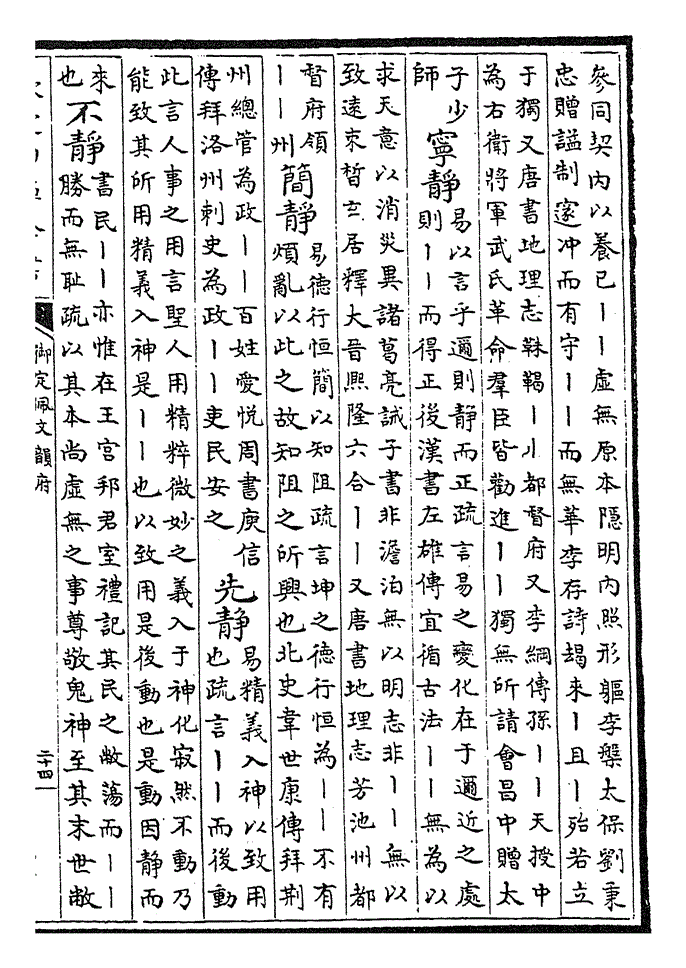 參同契內以養已丨丨虛無原本隱明內照形軀李槃太保劉秉
忠贈謚制邃冲而有守丨丨而無華李存詩朅來丨且丨殆若立
于獨又唐書地理志靺鞨丨州都督府又李綱傳孫丨丨天授中
為右衛將軍武氏革命羣臣皆勸進丨丨獨無所請會昌中贈太
子少
師
寧靜
易以言乎邇則靜而正疏言易之變化在于邇近之處
則丨丨而得正後漢書左雄傳宜循古法丨丨無為以
求天意以消災異諸葛亮誡子書非澹泊無以明志非丨丨無以
致遠束晳玄居釋大晉熙隆六合丨丨又唐書地理志芳池州都
督府領
丨丨州
簡靜
易德行恒簡以知阻疏言坤之德行恒為丨丨不有
煩亂以此之故知阻之所興也北史韋世康傳拜荆
州總管為政丨丨百姓愛悅周書庾信
傳拜洛州刺史為政丨丨吏民安之
先靜
易精義入神以致用
也疏言丨丨而後動
此言人事之用言聖人用精粹微妙之義入于神化寂然不動乃
能致其所用精義入神是丨丨也以致用是後動也是動因靜而
來
也
不靜
書民丨丨亦惟在王宮邦君室禮記其民之敝蕩而丨丨
勝而無恥疏以其本尚虛無之事尊敬鬼神至其末世敝
御定佩文韻府
二十四